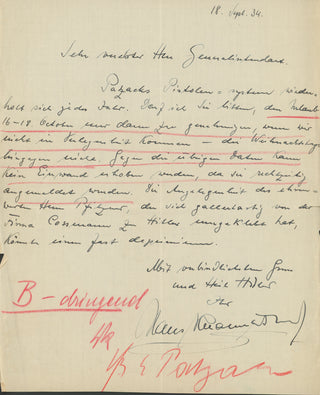 18. Sept. 34.
Sehr verehrter Herr Generalintendant.
Patzaks Pistolen-system wieder-
holt sich jedes Jahr. Darf ich Sie bitten, den Urlaub
16-18 October nur dann zu genehmigen, wenn wir
nicht in Verlegenheit kommen – die Weihnachtstage
hingegen nicht. Gegen die übrigen Daten kann
kein Einwand erhoben werden, da sie rechtzeitig
angemeldet wurden. Die Angelegenheit des ehren-
werten Herrn Pfitzner, der sich von der
Firma Cossmann zu Hitler umgeklebt hat,
könnte einen fast degoutieren.
Mit verbindlichstem Gruss
und Heil Hitler
Ihr
Hans Knappertsbusch
B - dringend
Patzak